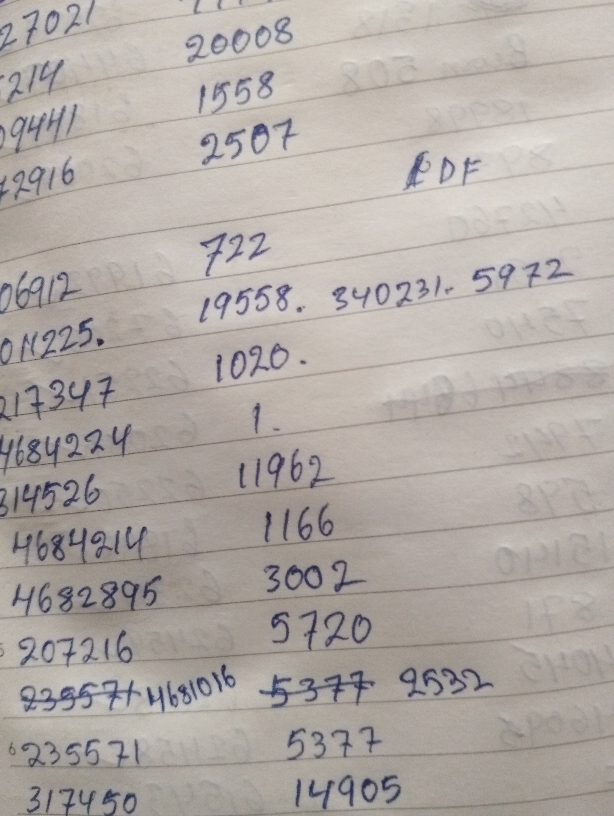 27021
5214 20008
09441 1558
72916 2507
PDF
06912 722
19558. 340231. 5972
217347 1020.
4684224 1.
314526 11962
4684214 1166
4682895 3002
207216 5720
235571 4681016 5377 2532
6 235571 5377
317450 14905